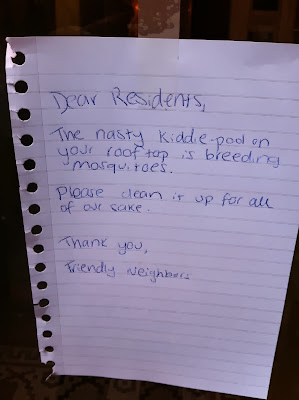 Dear Residents,
The nasty kiddie-pool on
your roof top is breeding
mosquitoes.
Please clean it up for all
of our sake.
Thank you,
Friendly Neighbors